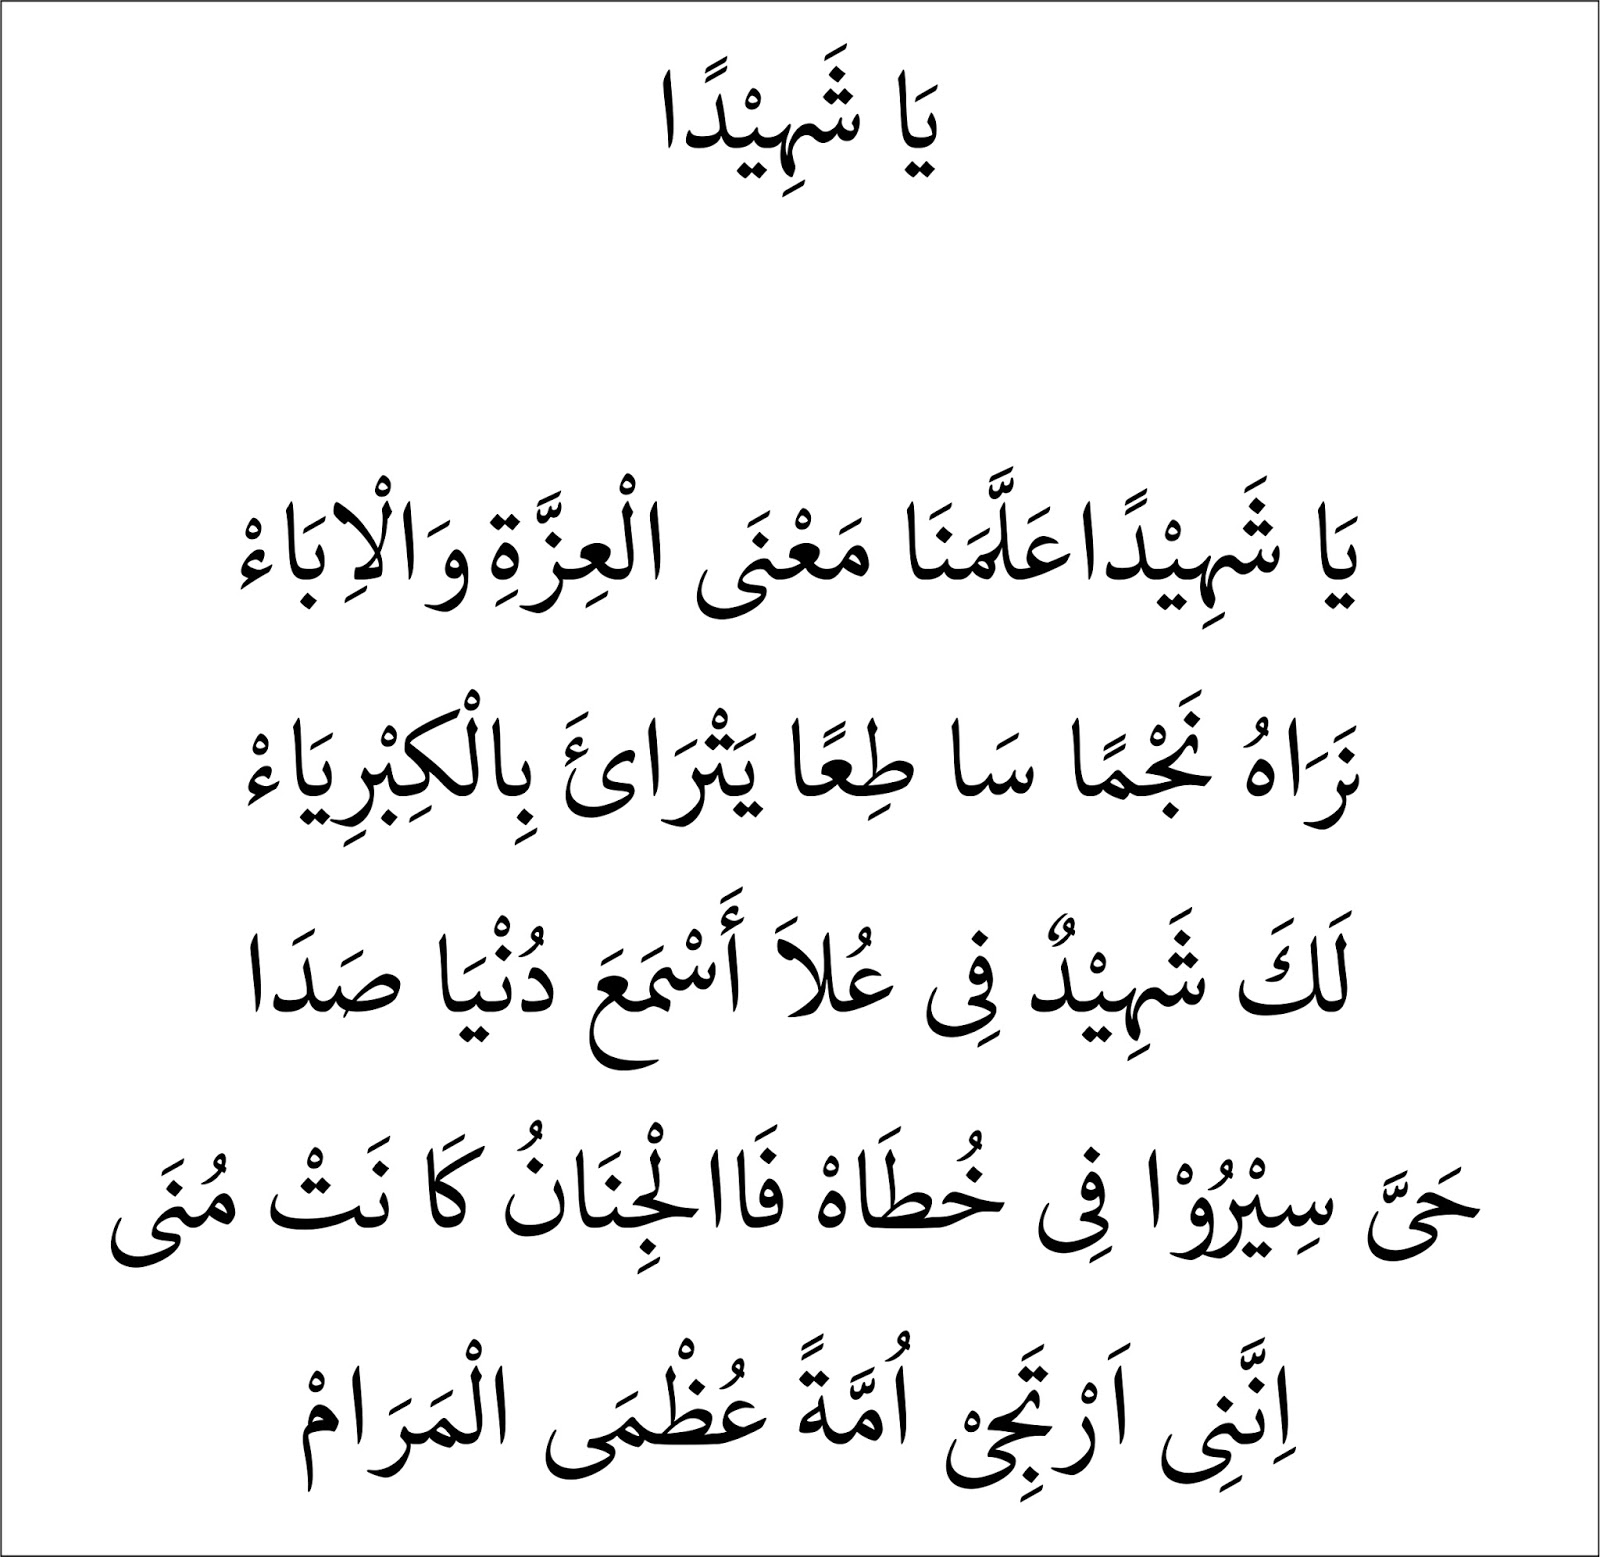 يَا شَهِيْدًا
يَا شَهِيْدًاعَلَّمَنَا مَعْنَى الْعِزَّةِ وَالْاِبَاءْ
نَرَاهُ نَجْمًا سَا طِعًا يَتْرَائَ بِالْكِبْرِيَاءْ
لَكَ شَهِيْدٌ فِى عُلاَ أَسْمَعَ دُنْيَا صَدَا
حَىَّ سِيْرُوْا فِى خُطَاهْ فَاالْجِنَانُ كَا نَتْ مُنَى
اِنَّنِى اَرْتَجِىْ اُمَّةً عُظْمَى الْمَرَامْ